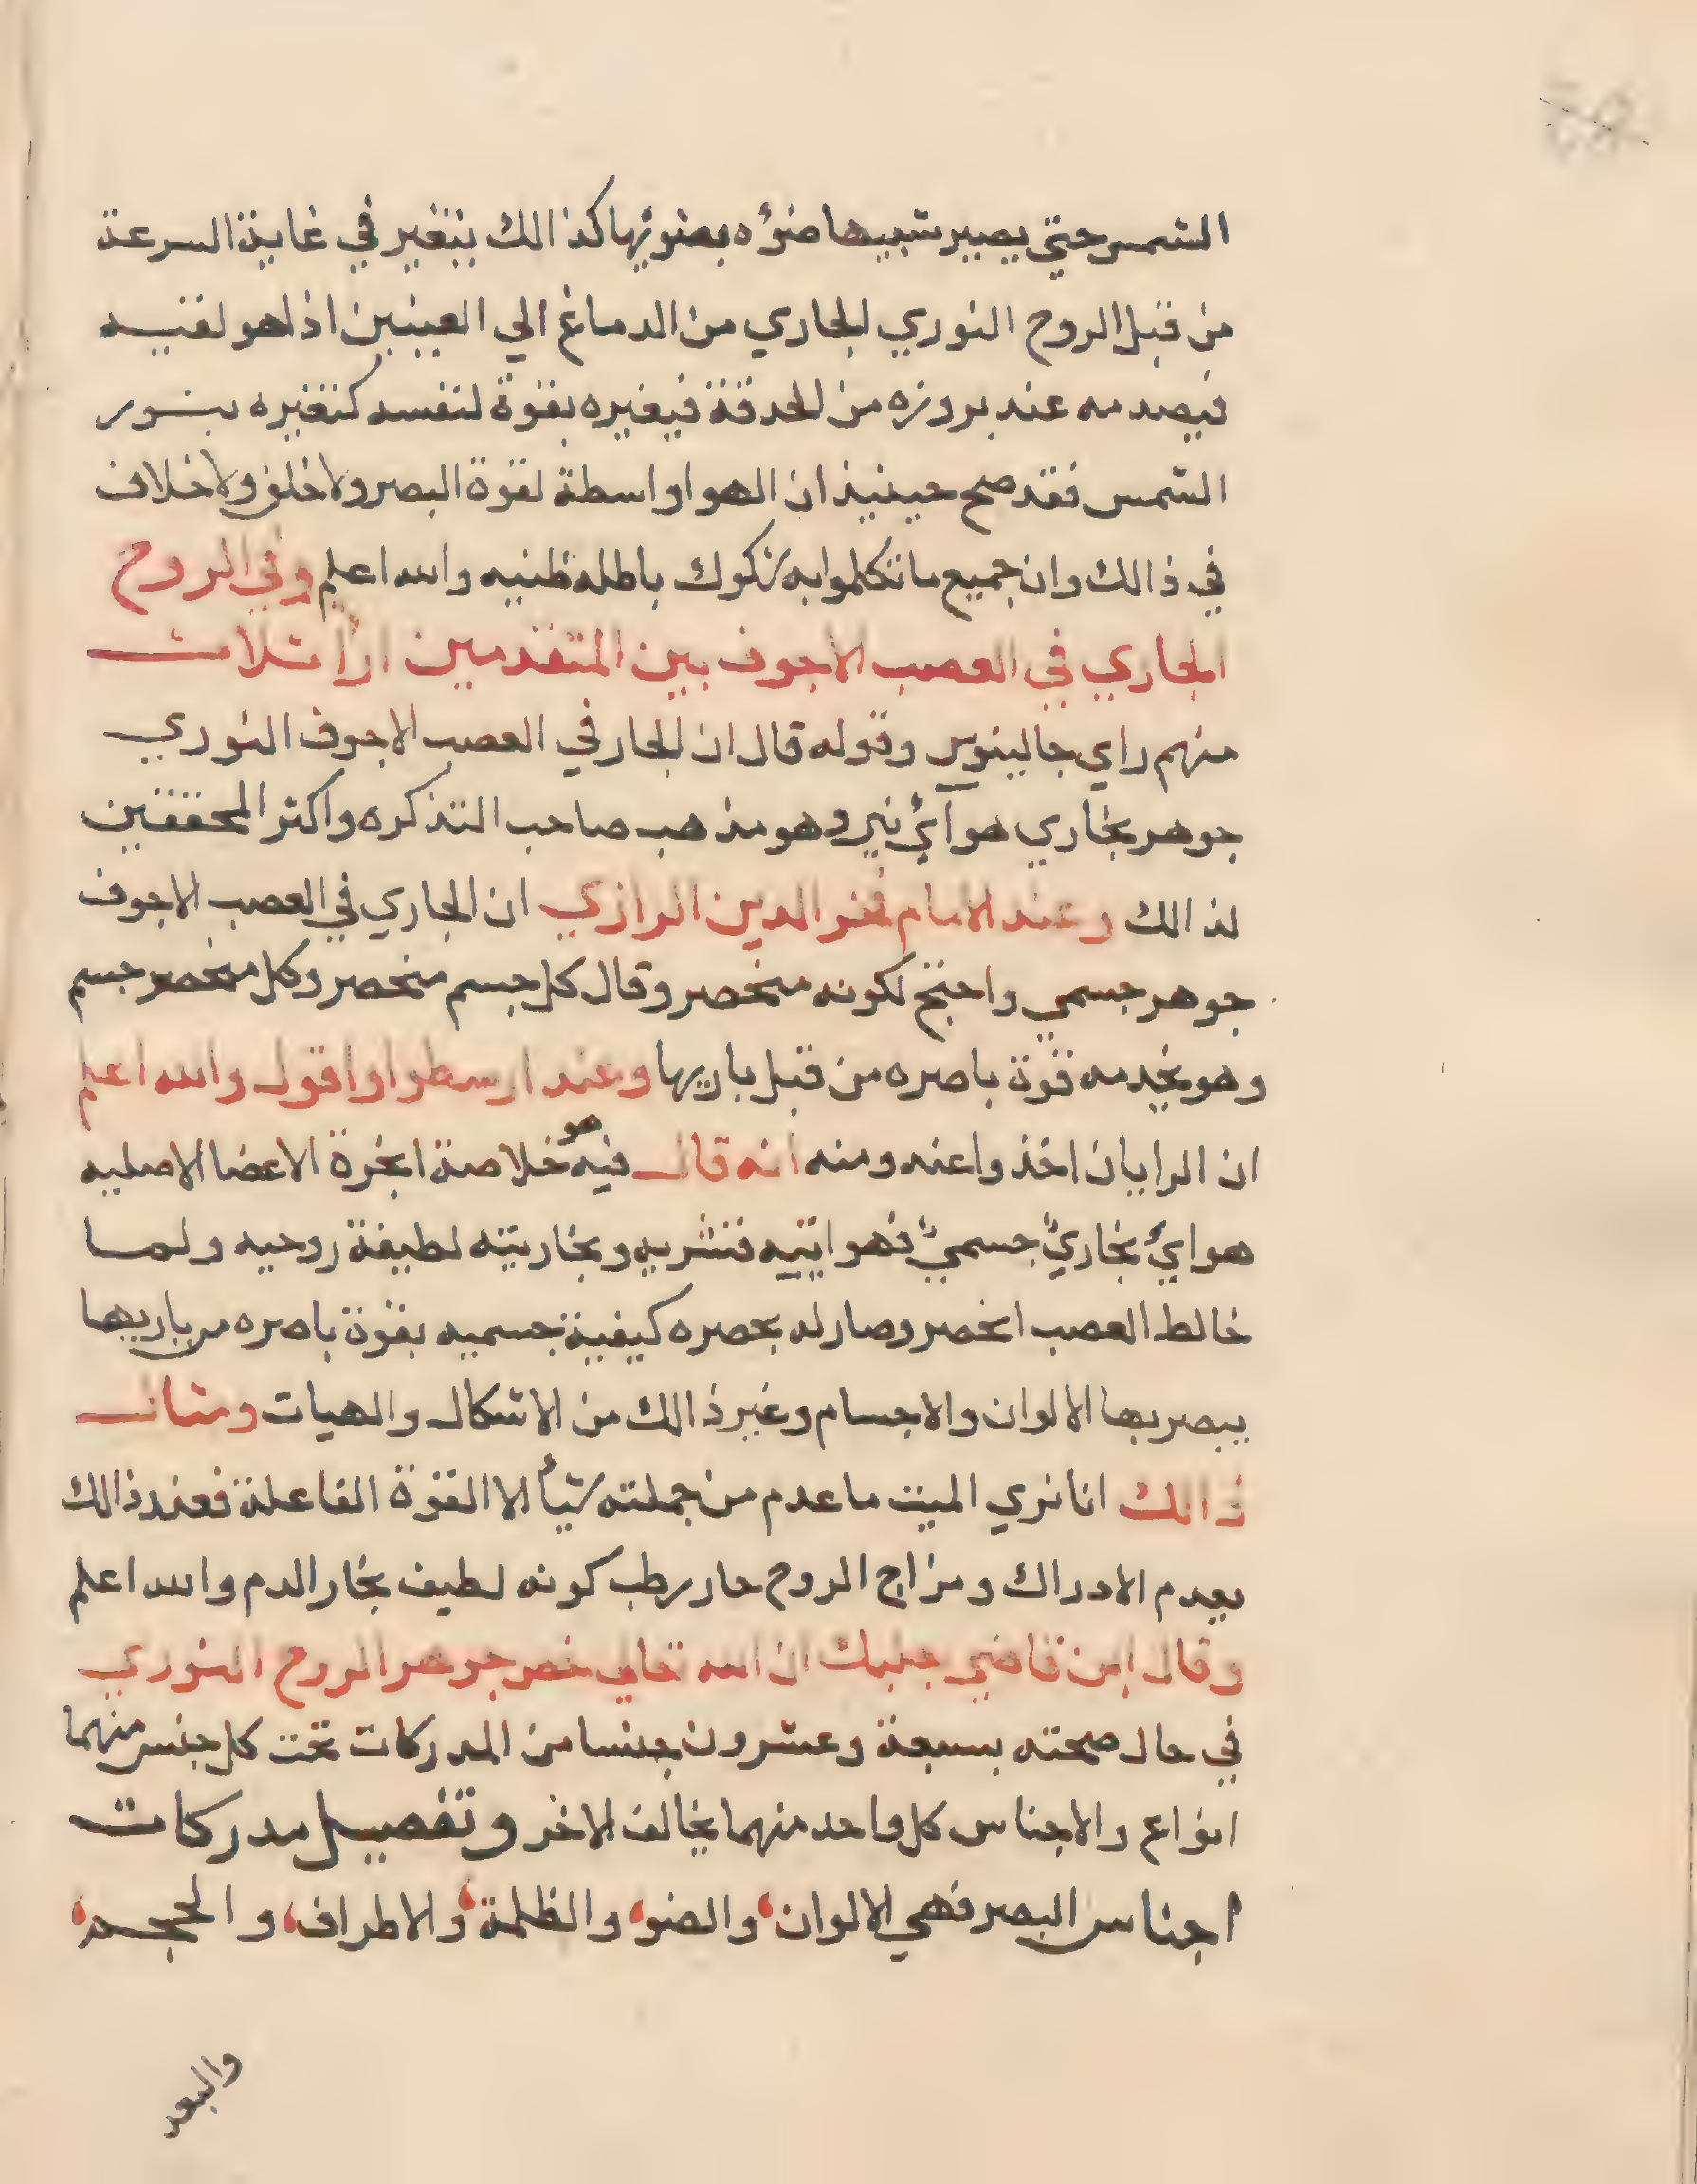 الشمس حتي يصير شبيها ضؤه بضوئها كذالك يتغير في غاية السرعة
من قبل الروح النوري الجاري من الدماغ الي العينين اذا هو لقيه
فيصدمه عند بروزه من الحدقة فيغيره بقوة لنفسه كتغيره بنور
الشمس فقد صح حينيذ ان الهوا واسطة لقوة البصر ولا خلق ولا خلاف
في ذالك وان جميع ما تكلموا به شكوك باطله ظنيه والله اعلم وفي الروح
الجاري في العصب الاجوف بين المتقدمين ارأ ثلاث
منهم راي جالينوس وقوله قال ان الجار في العصب الاجوف النوري
جوهر بخاري هوآئي نير وهو مذهب صاحب التذكره واكثر المحققين
لذالك وعند الامام فخر الدين الرازي ان الجاري في العصب الاجوف
جوهر جسمي واحتج لكونه منحصر وقال كل جسم منحصر وكل منحصر جسم
وهو يخدمه قوة باصره من قبل باريها وعند ارسطوا واقول والله اعلم
ان الرايان اخذوا عنه ومنه انه قال فيه هو خلاصة ابخرة الاعضا الاصليه
هوايٌ بخاريٌ جسميٌ فهوائيته قشريه وبخاريته لطيفة روحيه ولما
خالط العصب انحصر وصار له بحصره كيفية جسميه بقوة باصره من باريها
يبصر بها الالوان والاجسام وغير ذالك من الاشكال والهيات ومثال
ذالك انا نري الميت ما عدم من جملته شيأ الا القوة الفاعلة فعند ذالك
يعدم الادراك ومزاج الروح حار رطب كونه لطيف بخار الدم والله اعلم
وقال ابن قاضي بعلبك ان الله تعالي خص جوهر الروح النوري
في حال صحته بسبعة وعشرون جنسا من المدركات تحت كل جنس منهما
انواع والاجناس كل واحد منهما يخالف الاخر وتفصيل مدركات
اجناس البصر فهي الالوان، والضو، والظلمة، والاطراف، والحجم،
والبعد